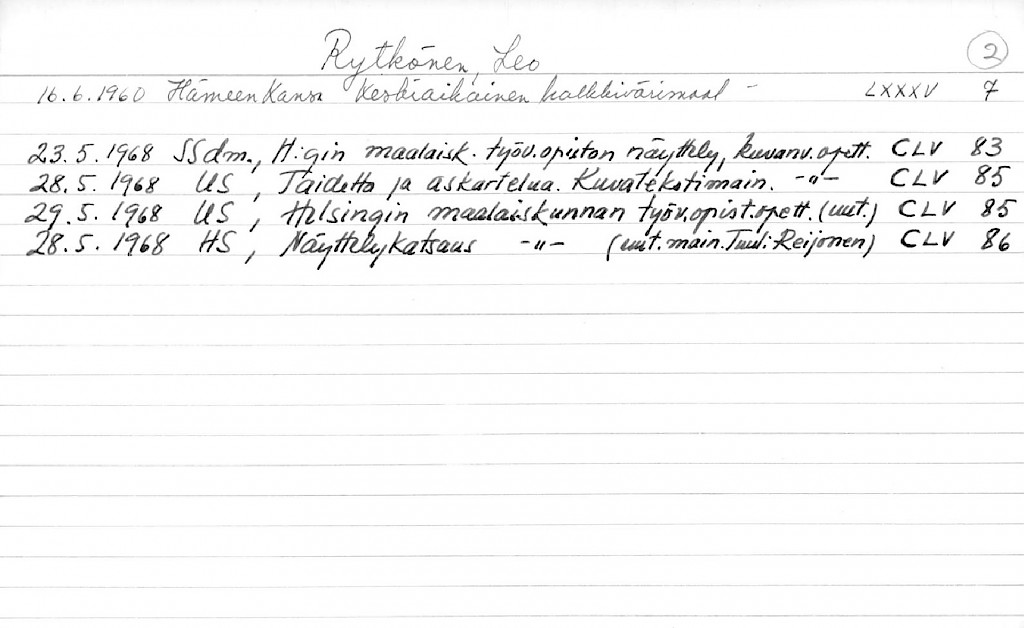 Rytkönen, Leo 2
16.6.1960 Hämeen Kansa Keskiaikainen kalkkivärimaal - LXXXV 7
23.5.1968 SSdm., H:gin maalaisk. työv.opiston näyttely, kuvanv.opett. CLV 83
28.5.1968 US, Taidetta ja askartelua. Kuvatekstimain. -"- CLV 85
29.5.1968 US, Helsingin maalaiskunnan työv.opist.opett. (uut.) CLV 85
28.5.1968 HS, Näyttelykatsaus -"- (uut.main. Tuuli Reijonen) CLV 86